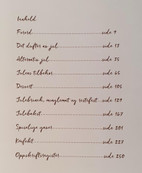 Innhold
Forord side 9
Det dufter av jul side 13
Alternativ jul side 35
Julens tilbehør side 65
Dessert side 105
Julebrunch, munglunsj og restefest side 129
Julebakst side 167
Spiselige gaver side 201
Konfekt side 223
Oppskriftsregister side 250